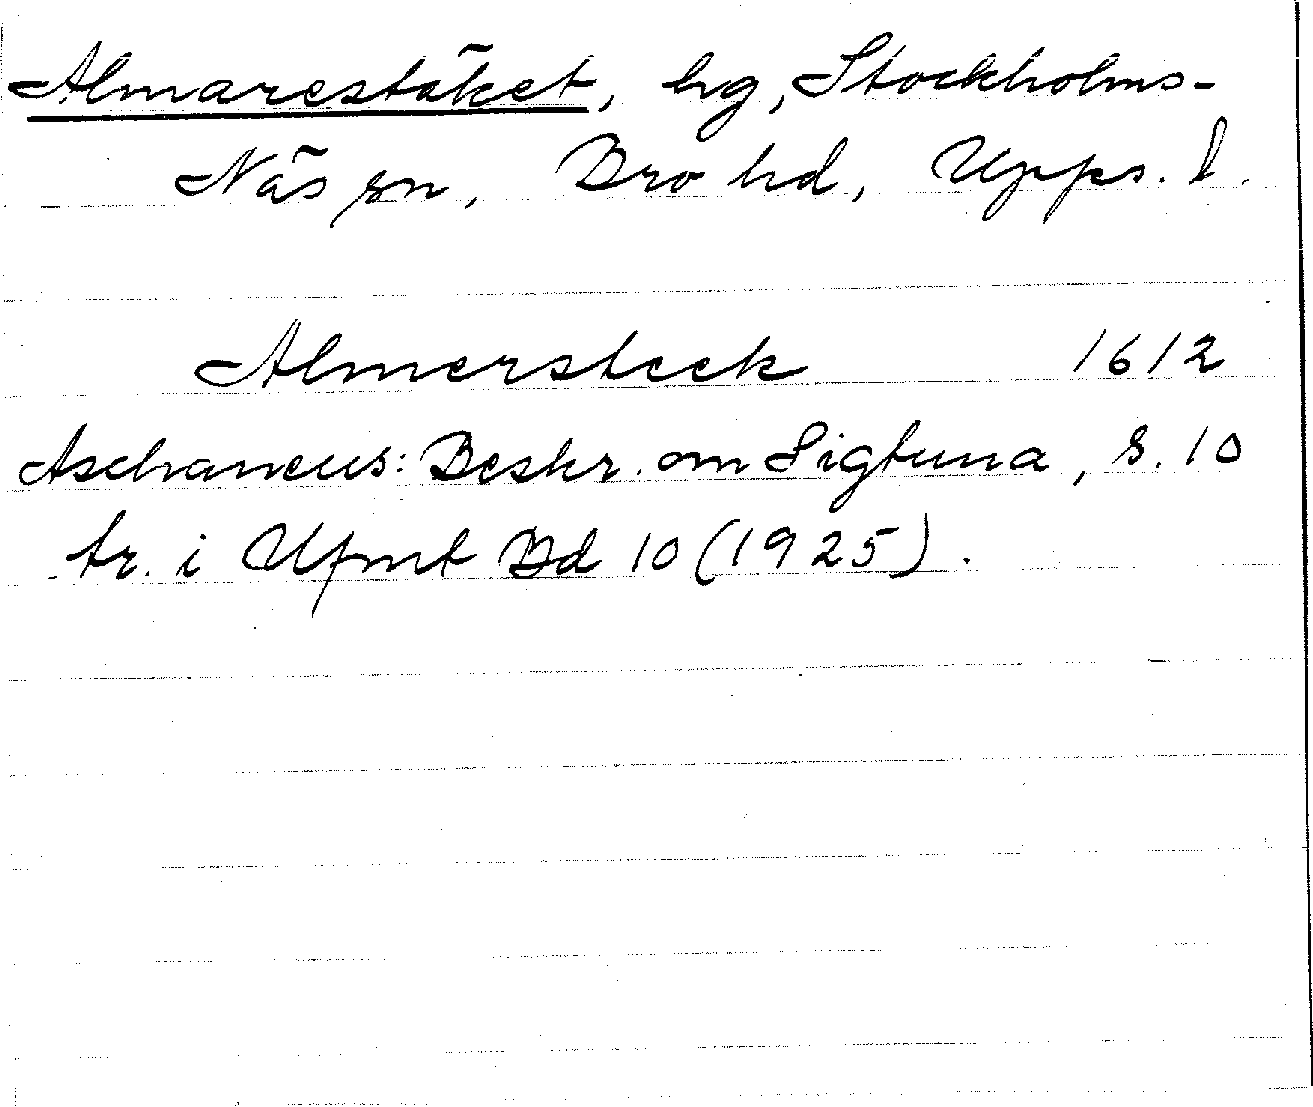 Almarestäket, hg, Stockholms-
Näs sn, Bro hd, Upps. l.
Almersteek 1612
Aschaneus: Beskr. om Sigtuna, s. 10
tr. i Ufmt Bd 10 (1925).